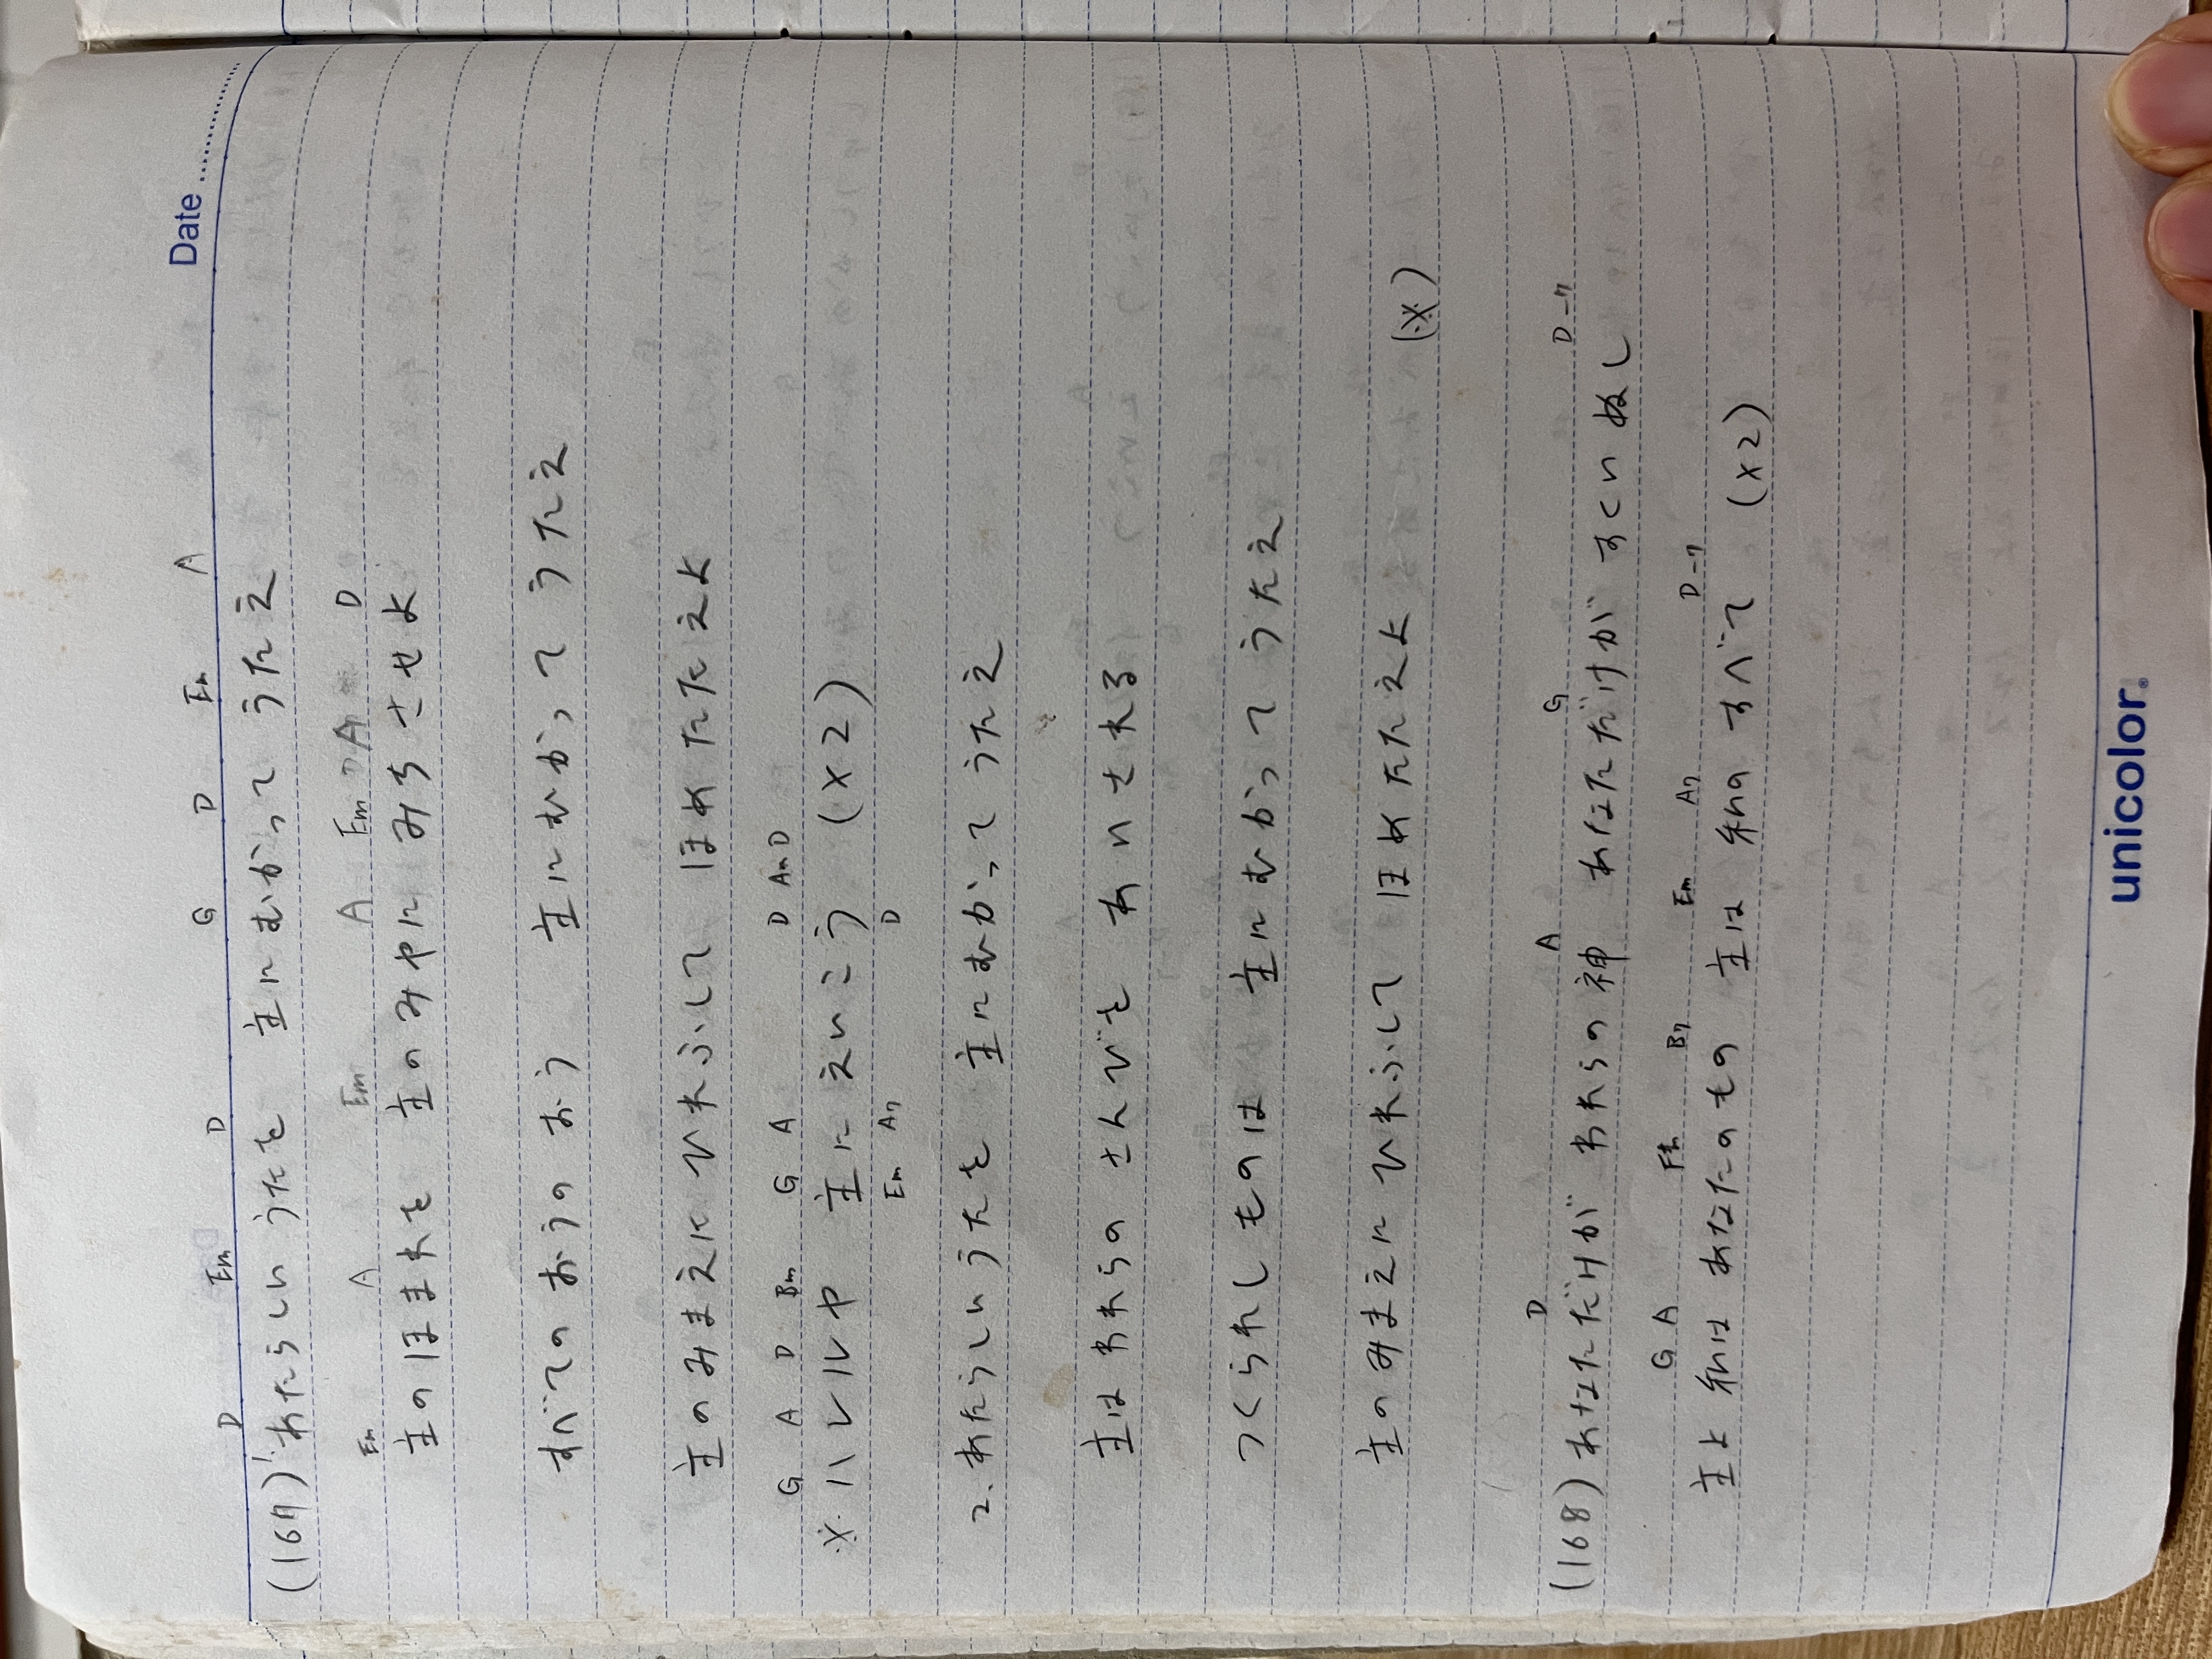 Date
D Em D G D Em A
(167) 1. あたらしい うたを 主にむかって うたえ
Em A Em A Em 7 A D
主のほまれを 主のみやに みちさせよ
すべての おうの おう 主にむかって うたえ
主のみまえに ひれふして ほめたたえよ
G A D Bm G A D A7 D
※ ハレルヤ 主に えいこう (×2)
Em A7 D
2. あたらしいうたを 主にむかって うたえ
主はわれらの さんびを あいされる
つくられしものは 主にむかって うたえ
主のみまえに ひれふして ほめたたえよ (※)
D A G D-7
(168) あなただけが われらの神 あなただけが すくいぬし
G A F# B7 Em A7 D-7
主よ 私は あなたのもの 主は 私の すべて (×2)
unicolor.